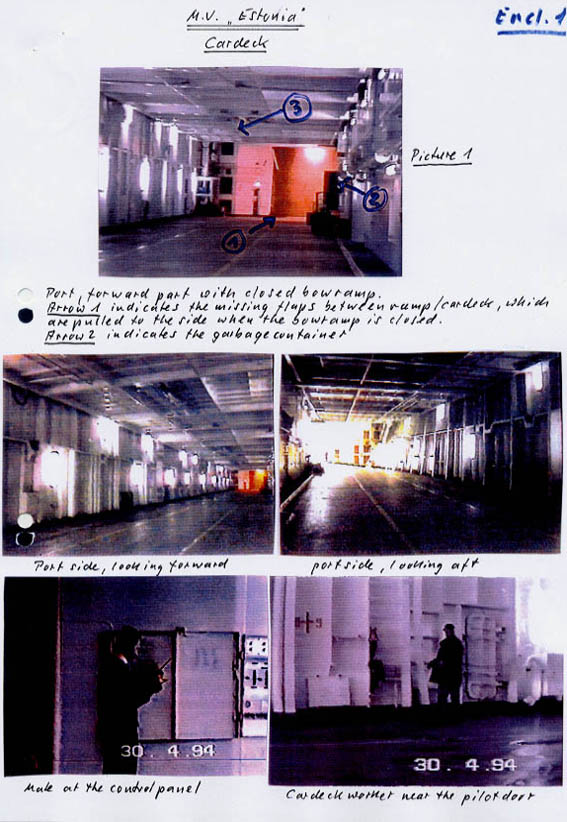 M.V. „Estonia"
Encl. 1
Cardeck
3
2
1
Picture 1
Port, forward part with closed bowramp.
Arrow 1 indicates the missing flaps between ramp/cardeck, which
are pulled to the side when the bowramp is closed.
Arrow 2 indicates the garbagecontainer
Port side, looking forward
port side, looking aft
30. 4.94
30. 4.94
Mate at the controlpanel
Cardeck worker near the pilotdoor